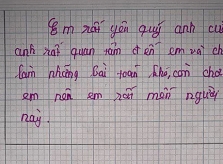 Em rất yên quý anh củ
anh rất quan tâm đ ến em và ch
làm những bài toán khó, còn chơi
em nên em rất mến người
này.